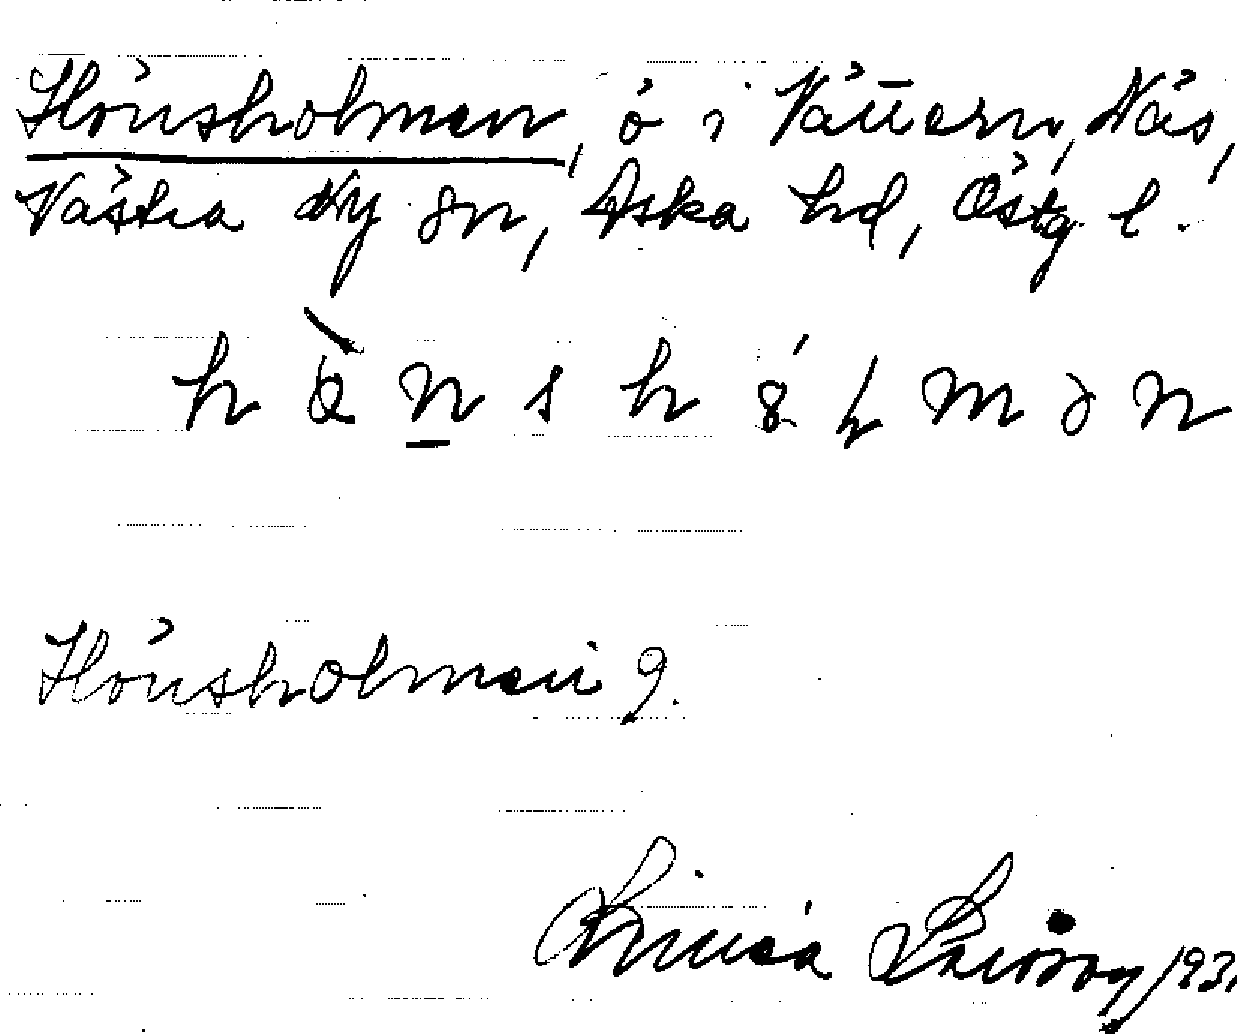 Hönsholmen, ö i Vättern, Näs,
Västra Ny sn, Aska hd, Östg. l.
h ö̀ n s h ó l m ə n
Hönsholmen 9.
Linnea 1931